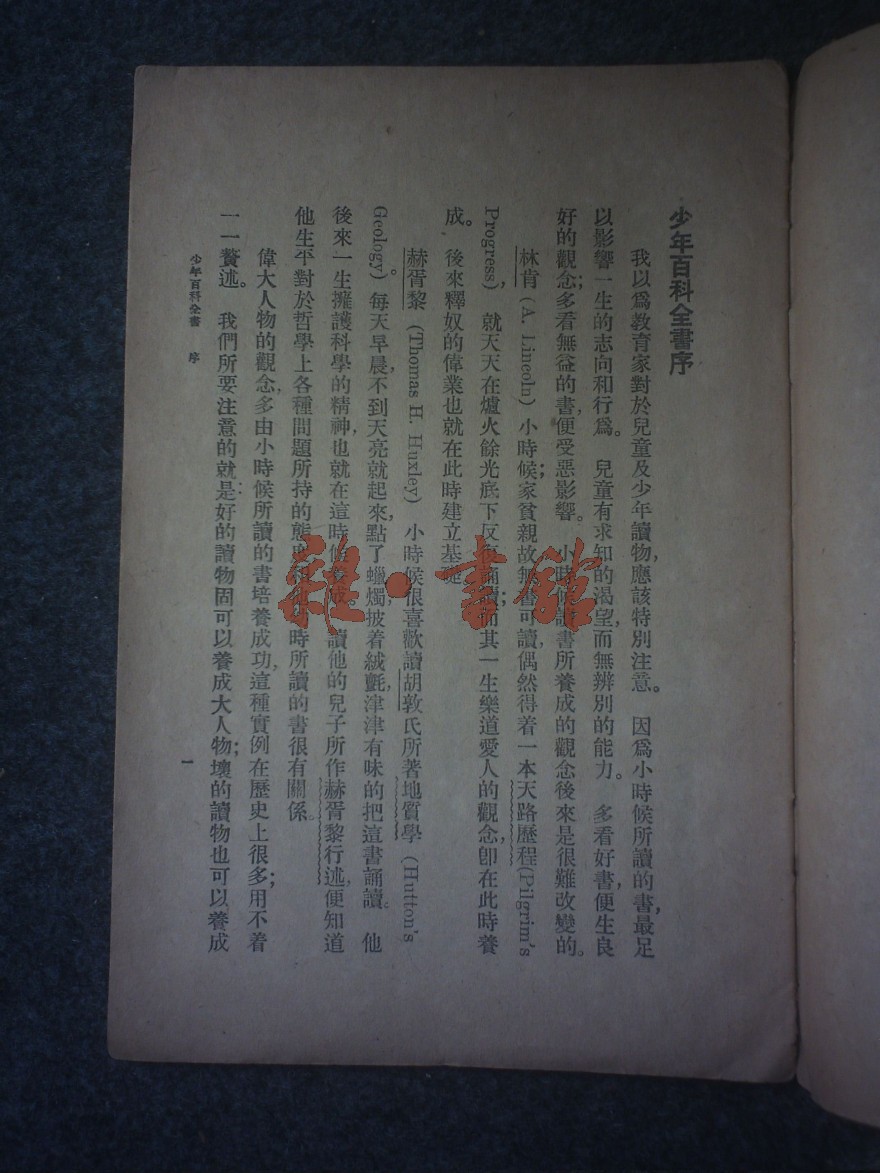 少年百科全書序
我以爲教育家對於兒童及少年讀物,應該特別注意。 因爲小時候所讀的書,最足
以影響一生的志向和行爲。 兒童有求知的渴望,而無辨別的能力。 多看好書,便生良
好的觀念;多看無益的書,便受惡影響。 小時候讀書所養成的觀念後來是很難改變的。
林肯(A. Lincoln)小時候家貧親故無書可讀;偶然得着一本天路歷程(Pilgrim's
Progress),就天天在爐火餘光底下反覆誦讀;而其一生樂道愛人的觀念,卽在此時養
成。 後來釋奴的偉業也就在此時建立基
赫胥黎(Thomas H. Huxley)小時候很喜歡讀胡敦氏所著地質學(Hutton's
Geology)。每天早晨,不到天亮就起來,點了蠟燭,披着絨氈,津津有味的把這書誦讀。 他
後來一生擁護科學的精神,也就在這時候養成。 讀他的兒子所作赫胥黎行述,便知道
他生平對於哲學上各種問題所持的態度和他少時所讀的書很有關係。
偉大人物的觀念,多由小時候所讀的書培養成功,這種實例在歷史上很多;用不着
一一贅述。 我們所要注意的就是:好的讀物固可以養成大人物;壞的讀物也可以養成
少年百科全書 序
一
雜·書館